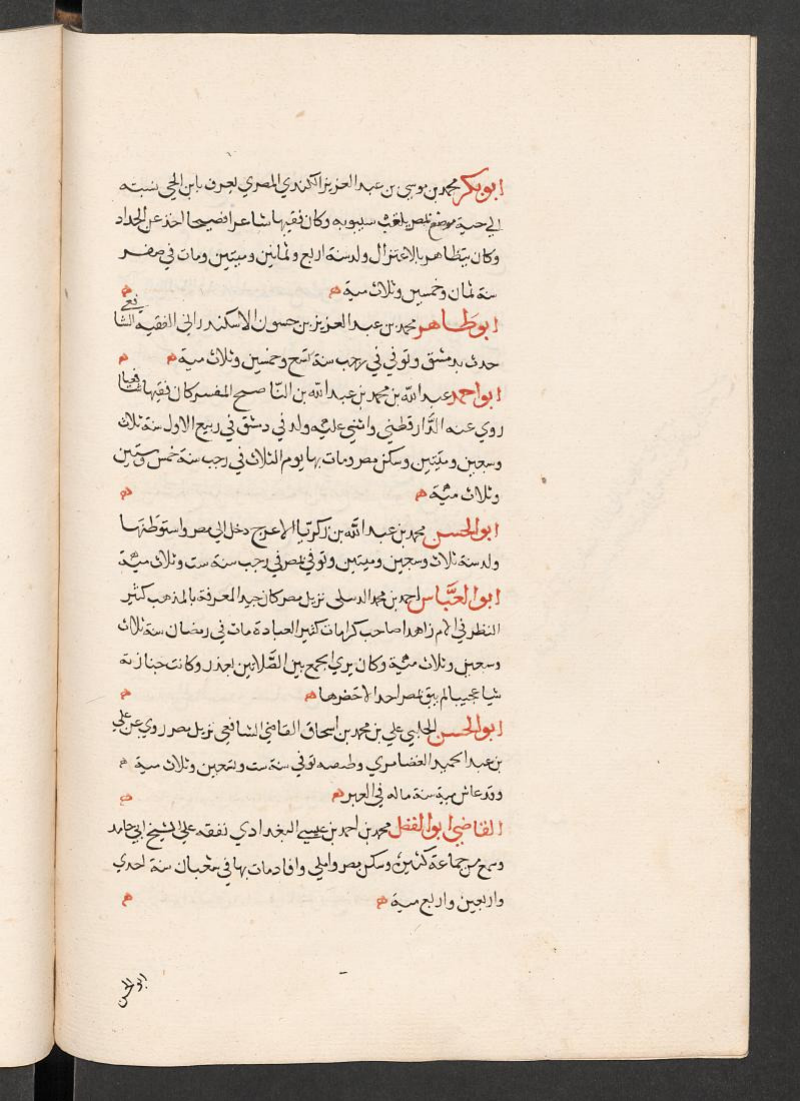 ابوبكر محمد بن موسى بن عبد العزيز الكندي المصري يعرف بابن الجي نسبته
الي حية موضع بمصر يلقب سيبويه وكان فقيها شاعرا فصيحا اخذ عن الحداد
وكان يتظاهر بالاعتزال ولد سنة اربع وثمانين وميتين ومات في صفر
سنة ثمان وخمسين وثلاث مية ه ه
ابوطاهر محمد بن عبد العزيز بن حسون الاسكندراني الفقيه الشافعي
حدث بدمشق وتوفي في رجب سنة تسع وخمسين وثلاث مية ه ه
ابواحمد عبد الله بن محمد بن عبد الله بن الناصح المفسر كان فقيها شافعيا
روي عنه الدارقطني واثني عليه ولد في دمشق في ربيع الاول سنة ثلاث
وسبعين وميتين وسكن مصر ومات بها يوم الثلاث في رجب سنة خمس وستين
وثلاث مئة ه ه
ابوالحسن محمد بن عبد الله بن زكريا الاعرج دخل الي مصر واستوطنها
ولد سنة ثلاث وسبعين وميتين وتوفي بمصر في رجب سنة ست وثلاث مئة
ابوالعباس احمد بن محمد الدسلى نزيل مصر كان جيد المعرفة بالمذهب كثير
النظر في الام زاهدا صاحب كرامات كثير العبادة مات في رمضان سنة ثلاث
وسبعين وثلاث مئة وكان يري الجمع بين الصلاتين بعذر وكانت جنازته
شيا عجيبا لم يبق بمصر احد الا حضرها ه ه
ابوالحسن الحلبي علي بن محمد بن اسحاق القاضي الشافعي نزيل مصر روي عن علي
بن عبد الحميد الغضايري وطبقته توفي سنة ست وتسعين وثلاث مية ه
وقد عاش مية سنة ماله في العبر ه ه
القاضي ابوالفضل محمد بن احمد بن عيسي البغدادي تفقه علي الشيخ ابي حامد
وسمع من جماعة كثيرين وسكن مصر واملي وافاد مات بها في شعبان سنة احدي
واربعين واربع مية ه ه
ابوالحسن